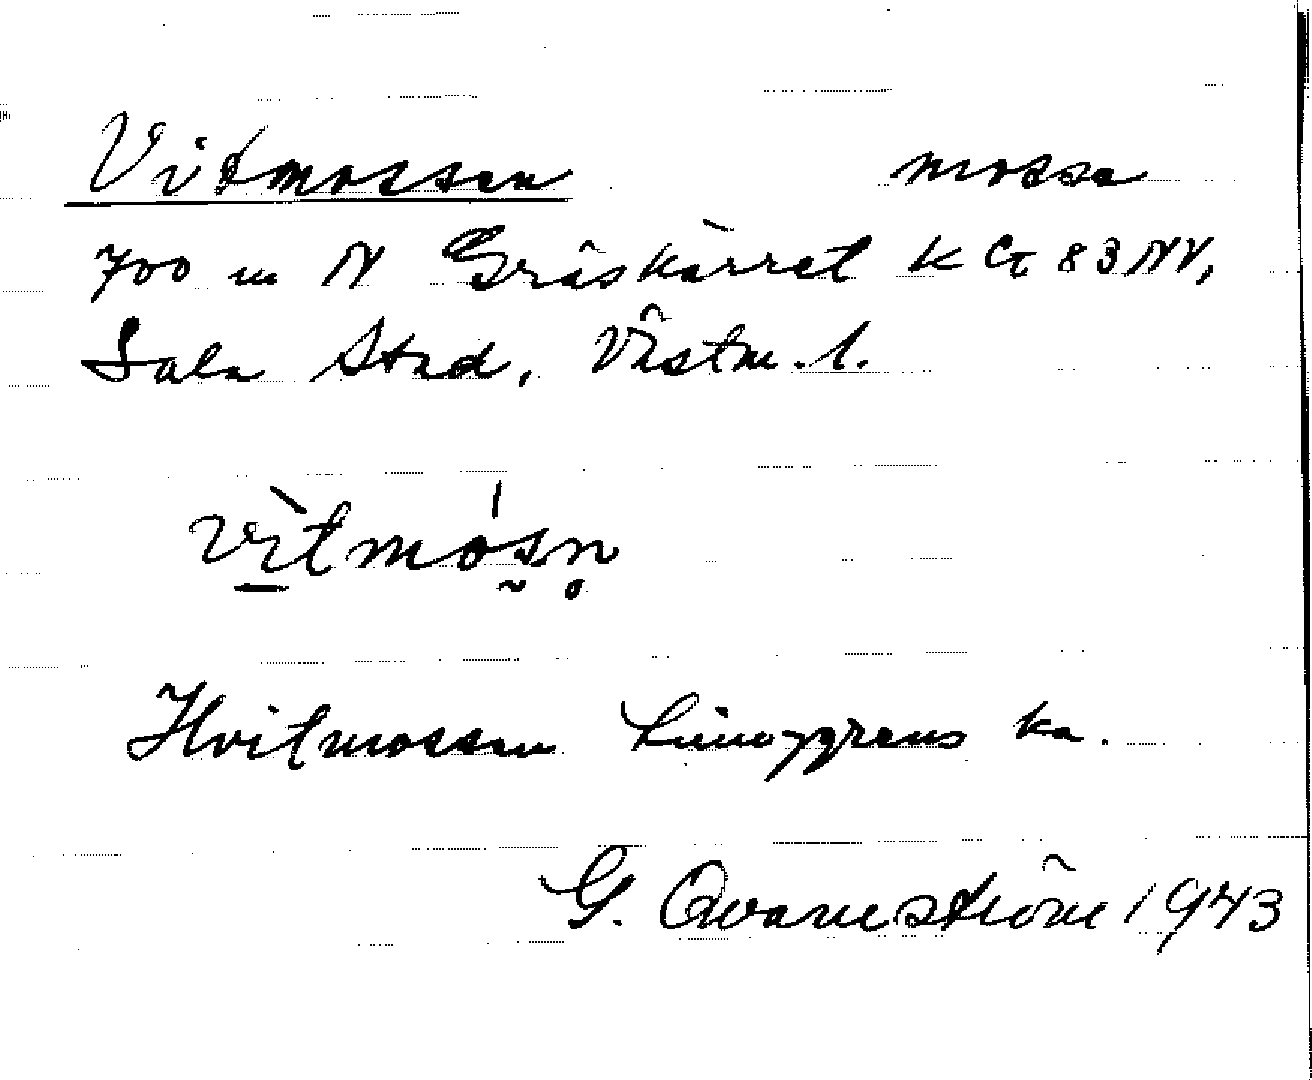 Vitmossen mosse
700 m N Gräskärret k G 83 NV,
Sala Stad, Västm. l.
vìtmósn̥
Hvitmossen Liung​grens ka.
G. Qvarnström 1943